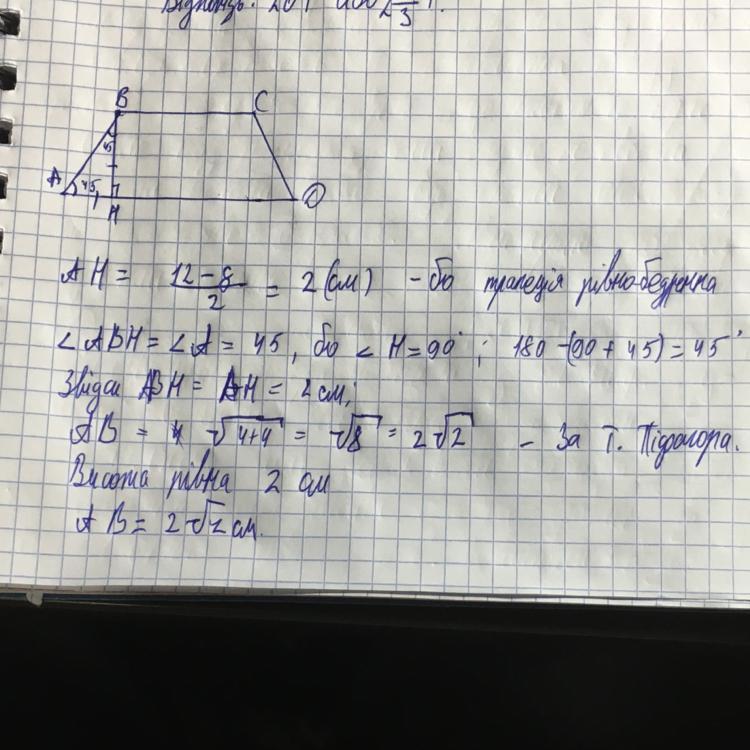 Відповідь:
B C
45
A 45 H D
AH = 12-8/2 = 2 (см) - бо трапеція рівнобедренна
∠ABH = ∠A = 45, бо ∠H = 90°; 180 -(90 + 45) = 45°
Звідси BH = AH = 2 см;
AB = √4+4 = √8 = 2√2 - За Т. Піфагора.
Висота рівна 2 см
AB = 2√2 см.